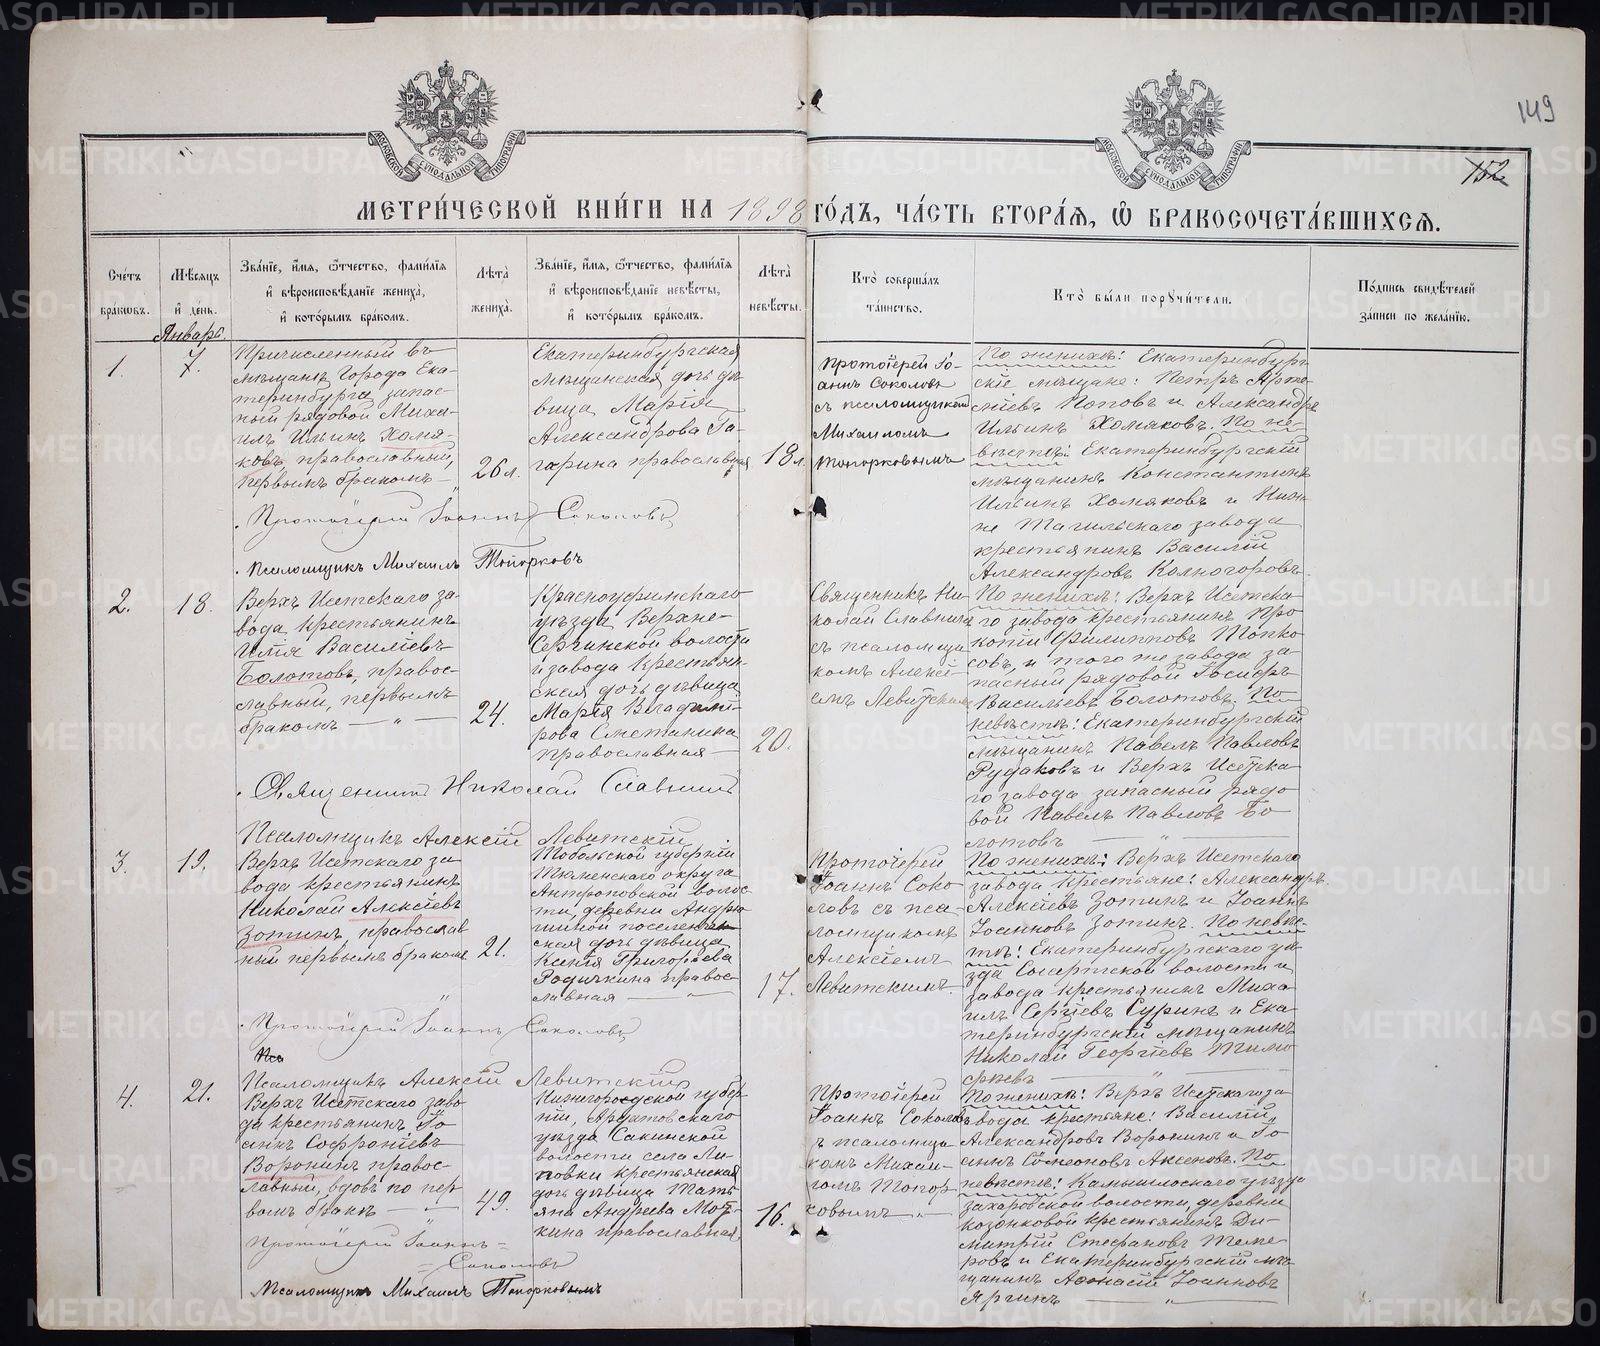 149
152
МОСКОВСКОЙ СѴНОДАЛЬНОЙ ТИПОГРАФІИ
МОСКОВСКОЙ СѴНОДАЛЬНОЙ ТИПОГРАФІИ
МЕТРИ́ЧЕСКОЙ КНИ́ГИ НА 1898 ГО́ДЪ, ЧА́СТЬ ВТОРА́Ѧ, Ѽ БРАКОСОЧЕТА́ВШИХСѦ.
Сче́тъ
бра́кѡвъ.
Мѣ́сѧцъ
и҆ де́нь.
Зва́нїе, и҆́мѧ, ѻ҆́тчество, фами́лїѧ
и҆ вѣроисповѣ́данїе жениха̀,
и҆ кото́рымъ бра́комъ.
Лѣ́та
жениха̀.
Зва́нїе, и҆́мѧ, ѻ҆́тчество, фами́лїѧ
и҆ вѣроисповѣ́данїе невѣ́сты,
и҆ кото́рымъ бра́комъ.
Лѣ́та
невѣ́сты.
Кто̀ соверша́лъ
та́инство.
Кто̀ бы́ли порꙋчи́тели.
По́дпись свидѣ́телей
за́писи по жела́нїю.
Январь.
1.
7.
Причисленный въ
мѣщане Города Ека-
теринбурга запас-
ный рядовой Миха-
илъ Ильинъ Хомя-
ковъ православный,
первымъ бракомъ
26 л.
Екатеринбургская
мѣщанская дочь дѣ-
вица Марія
Александрова Га-
гарина православная
18 л.
Протоіерей Іо-
аннъ Соколовъ
съ псаломщикомъ
Михаиломъ
Топорковымъ
По женихѣ: Екатеринбург-
скіе мѣщане: Петръ Арте-
міевъ Поповъ и Александръ
Ильинъ Хомяковъ. По не-
вѣстѣ: Екатеринбургскій
мѣщанинъ Константинъ
Ильинъ Хомяковъ и Ниж-
не Тагильскаго завода
крестьянинъ Василій
Александровъ Колногоровъ
Протоіерей Іоаннъ Соколовъ
Псаломщикъ Михаилъ Топорковъ
2.
18.
Верхъ Исетскаго за-
вода крестьянинъ
Илія Василіевъ
Болотовъ, правос-
лавный, первымъ
бракомъ — „ —
24.
Красноуфимскаго
уѣзда Верхне-
Сергинской волости
и завода крестьян-
ская дочь дѣвица
Марія Владими-
рова Сметанина
православная
20.
Священникъ Ни-
колай Славнинъ
съ псаломщи
комъ Алексі-
емъ Левитскимъ
По женихѣ: Верхъ Исетска-
го завода крестьянинъ Про
копій Филипповъ Топко
совъ, и того же завода за-
пасный рядовой Іосифъ
Васильевъ Болотовъ. По
невѣстѣ: Екатеринбургскій
мѣщанинъ Павелъ Павловъ
Рудаковъ и Верхъ Исетска-
го завода запасный рядо
вой Павелъ Павловъ Бо
лотовъ
Священникъ Николай Славнинъ
Псаломщикъ Алексій Левитскій
3.
19.
Верхъ Исетскаго за-
вода крестьянинъ
Николай Алексіевъ
Зотинъ православ
ный первымъ бракомъ
21.
Тобольской губерніи
Тюменскаго округа
Антроповской волос-
ти, деревни Андрю
шиной поселен-
ская дочь дѣвица
Ксенія Григорьева
Родичкина правос-
лавная
17.
Протоіерей
Іоаннъ Соко
ловъ съ пса-
ломщикомъ
Алексіемъ
Левитскимъ.
По женихѣ: Верхъ Исетскаго
завода крестьяне: Александръ
Алексіевъ Зотинъ и Іоаннъ
Іоанновъ Зотинъ. По невѣс-
тѣ: Екатеринбургскаго уѣ-
зда Сысертской волости и
завода крестьянинъ Миха-
илъ Сергіевъ Суринъ и Ека-
теринбургскій мѣщанинъ
Николай Георгіевъ Тимо
феевъ
Протоіерей Іоаннъ Соколовъ
Пса
Псаломщикъ Алексій Левитскій
4.
21.
Верхъ Исетскаго заво
да крестьянинъ Іо
аннъ Софроніевъ
Воронинъ правос-
лавный, вдовъ по пер
вомъ бракѣ
49.
Нижегородской губер
ніи, Ардатовскаго
уѣзда Саконской
волости села Ли-
повки крестьянская
дочь дѣвица Тать
яна Андреева Мот-
кина православная
16.
Протоіерей
Іоаннъ Соколовъ
съ псаломщи
комъ Михаи-
ломъ Топор-
ковымъ
По женихѣ: Верхъ Исетскаго за-
вода крестьяне: Василій
Александровъ Воронинъ и Іо
аннъ Симеоновъ Аксеновъ. По
невѣстѣ: Камышловскаго уѣзда
захаровской волости, деревни
казаковой крестьянинъ Ди-
митрій Стефановъ Теме-
ровъ и Екатеринбургскій мѣ-
щанинъ Афонасій Іоанновъ
Яргинъ
Протоіерей Іоаннъ
Соколовъ
Псаломщикъ Михаилъ Топорковымъ
METRIKI.GASO-URAL.RU